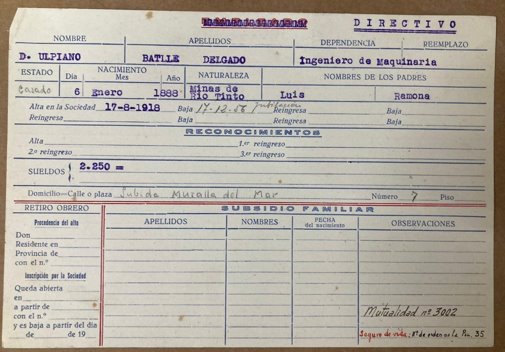 DIRECTIVO
NOMBRE APELLIDOS DEPENDENCIA REEMPLAZO
D. ULPIANO BATLLE DELGADO Ingeniero de Maquinaria
ESTADO NACIMIENTO NATURALEZA NOMBRES DE LOS PADRES
Dia Mes Año
Casado 6 Enero 1888 Minas de Rio Tinto Luis Ramona
Alta en la Sociedad 17-8-1918 Baja 17-12-56 jubilación Reingresa Baja
Reingresa Baja Reingresa Baja
RECONOCIMIENTOS
Alta 1.er reingreso
2.º reingreso 3.er reingreso
SUELDOS 2.250 =
Domicilio-Calle o plaza Subida Muralla del Mar Número 7 Piso
RETIRO OBRERO SUBSIDIO FAMILIAR
Precedencia del alta APELLIDOS NOMBRES FECHA del nacimiento OBSERVACIONES
Don
Residente en
Provincia de
con el n.º
Inscripción por la Sociedad
Queda abierta
en
a partir de
con el n.º
y es baja a partir del día
de de 19
Mutualidad nº 3002
Seguro de vida: Nº de orden en la 35